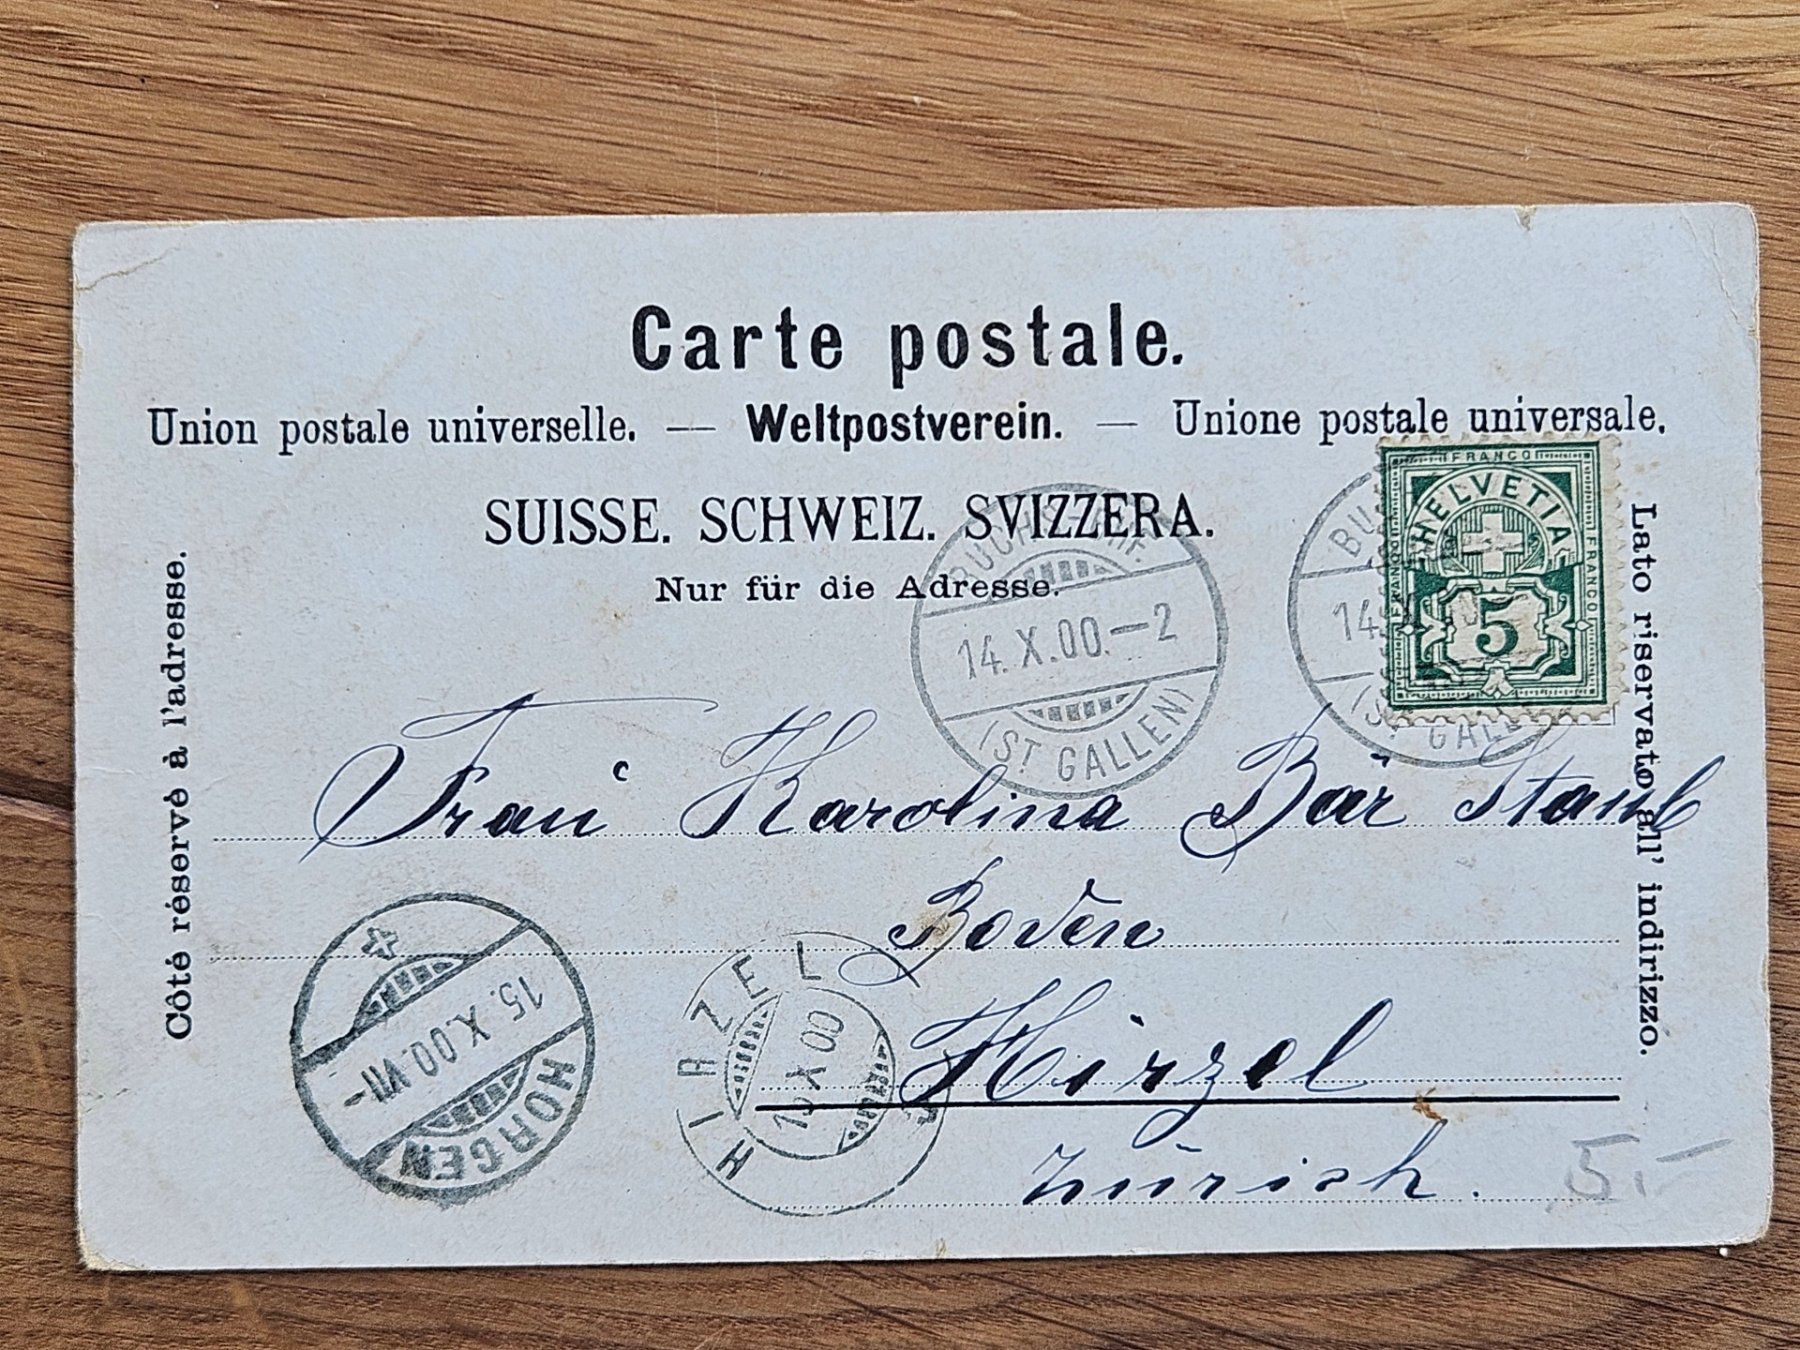 Carte postale.
Union postale universelle. — Weltpostverein. — Unione postale universale.
SUISSE. SCHWEIZ. SVIZZERA.
Nur für die Adresse.
Côté réservé à l'adresse.
Lato riservato all' indirizzo.
FRANCO
FRANCO
FRANCO
HELVETIA
5
BUCHS
14. X. 00. — 2
(ST GALLEN)
BU
14.
(ST GALL
Frau Karolina Bär Staub
Boden
Hirzel
Zürich.
15. X. 00. VII —
HORGEN
HIRZEL
15 X 00
5.-